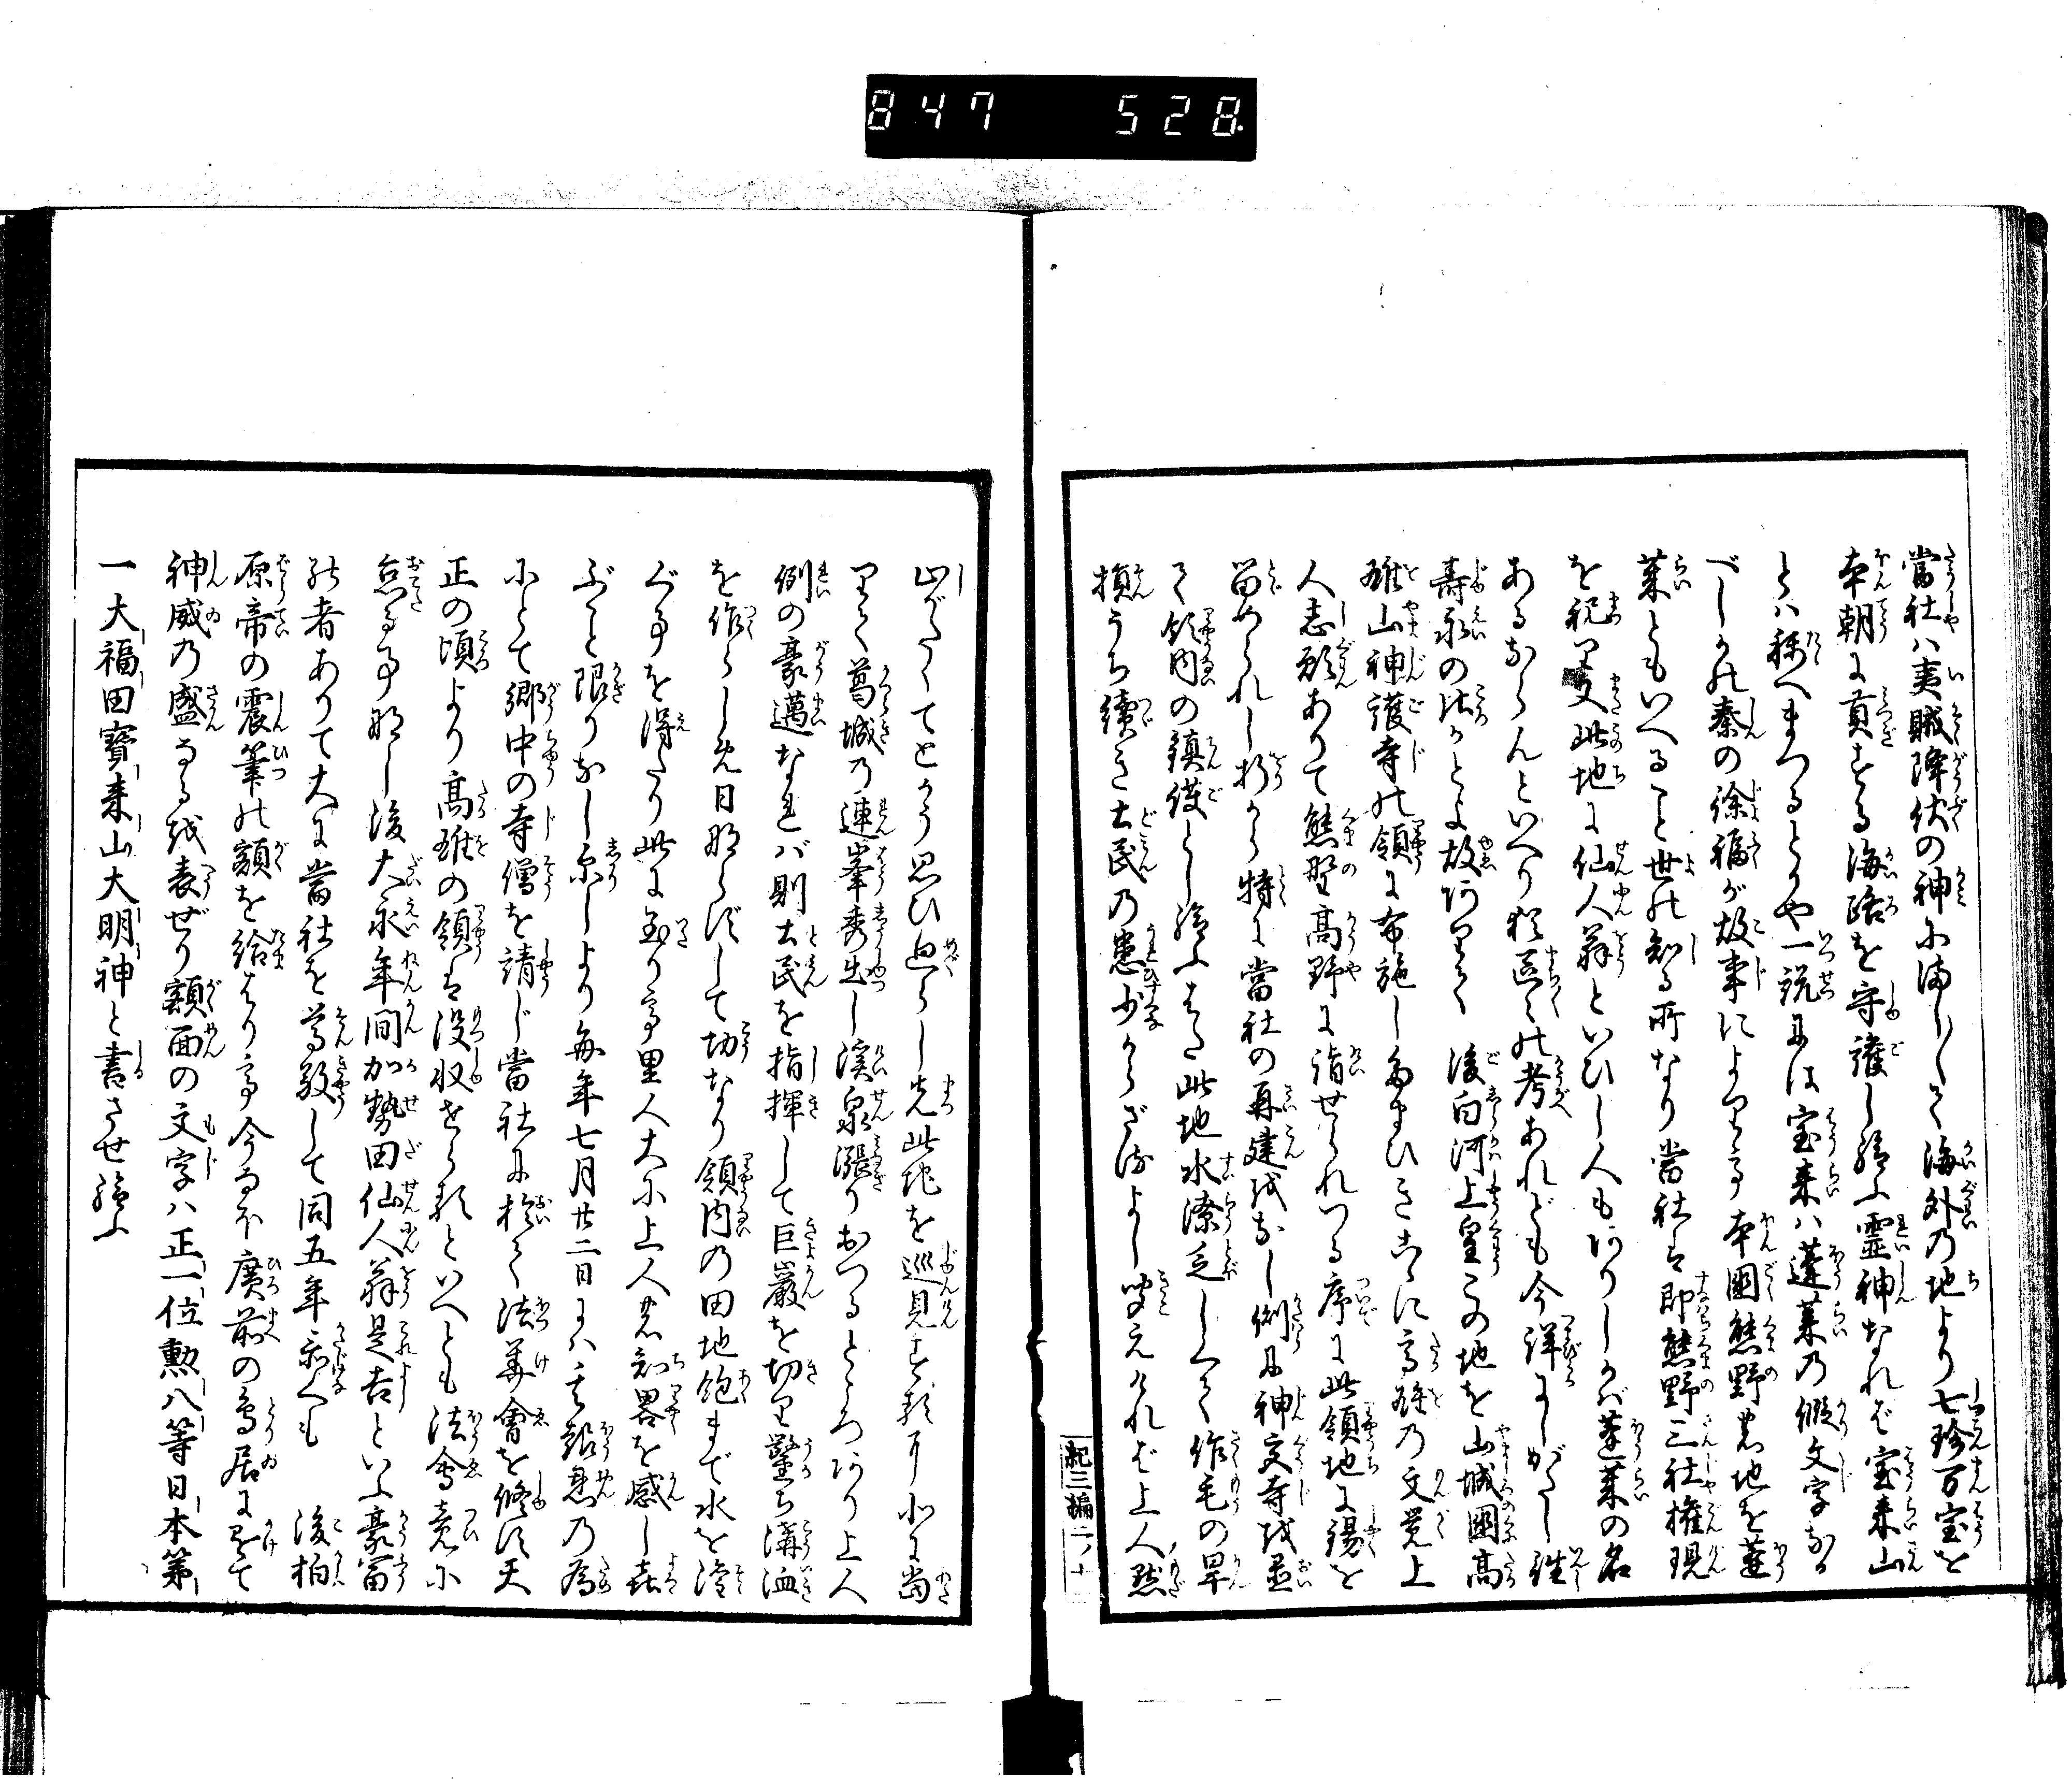 847 528
當社ハ夷賊降伏の神にましまして海外の地より七珍万宝を
本朝に貢する海路を守護し給ふ霊神なれば宝来山
とハ称へまつるとかや一説には宝来ハ蓬莱の假文字なる
べしかの秦の徐福が故事によりて本國熊野の地を蓬
莱ともいへること世の知る所なり當社は即熊野三社権現
を祝へり又此地に仙人翁といひし人もありしかバ蓬莱の名
あるならんといへり猶区々の考あれども今詳にしがたし往
壽永の比かとよ故ありて後白河上皇この地を山城國高
雄山神護寺の領に布施し給ひきこゝに高雄の文覚上
人志願ありて熊野高野に詣せられつる序に此領地に錫を
留められし折から特に當社の再建をなし側に神交寺を並
て領内の鎮護とし給ふまた此地水潦乏しくて作毛の旱
損うち續き土民の患少からざるよし聞えければ上人黙
紀三編二ノ十
止がたくてとかう思ひ廻らし先此地を巡見するに北に當
りて葛城の連峯秀出し渓泉漲りおつるところあり上人
例の豪邁なれバ則土民を指揮して巨巖を切り鑿ち溝洫
を作らしめ日ならずして功なり領内の田地飽まで水を灌
ぐ事を得たり此に至りて里人大に上人の智畧を感し喜
ぶこと限りなし尓しより毎年七月廿二日にハ其報恩の為
にとて郷中の寺僧を請じ當社に於て法華會を修す天
正の頃より高雄の領は没収せらるといへとも法會竟に
怠る事なし後大永年間加勢田仙人翁是吉といふ豪富
の者ありて大に當社を尊敬して同五年忝くも 後柏
原帝の震筆の額を給はりて今なほ廣前の鳥居に掲て
神威の盛なるを表せり額面の文字ハ正一位勲八等日本第
一大福田寶来山大明神と書させ給ふ